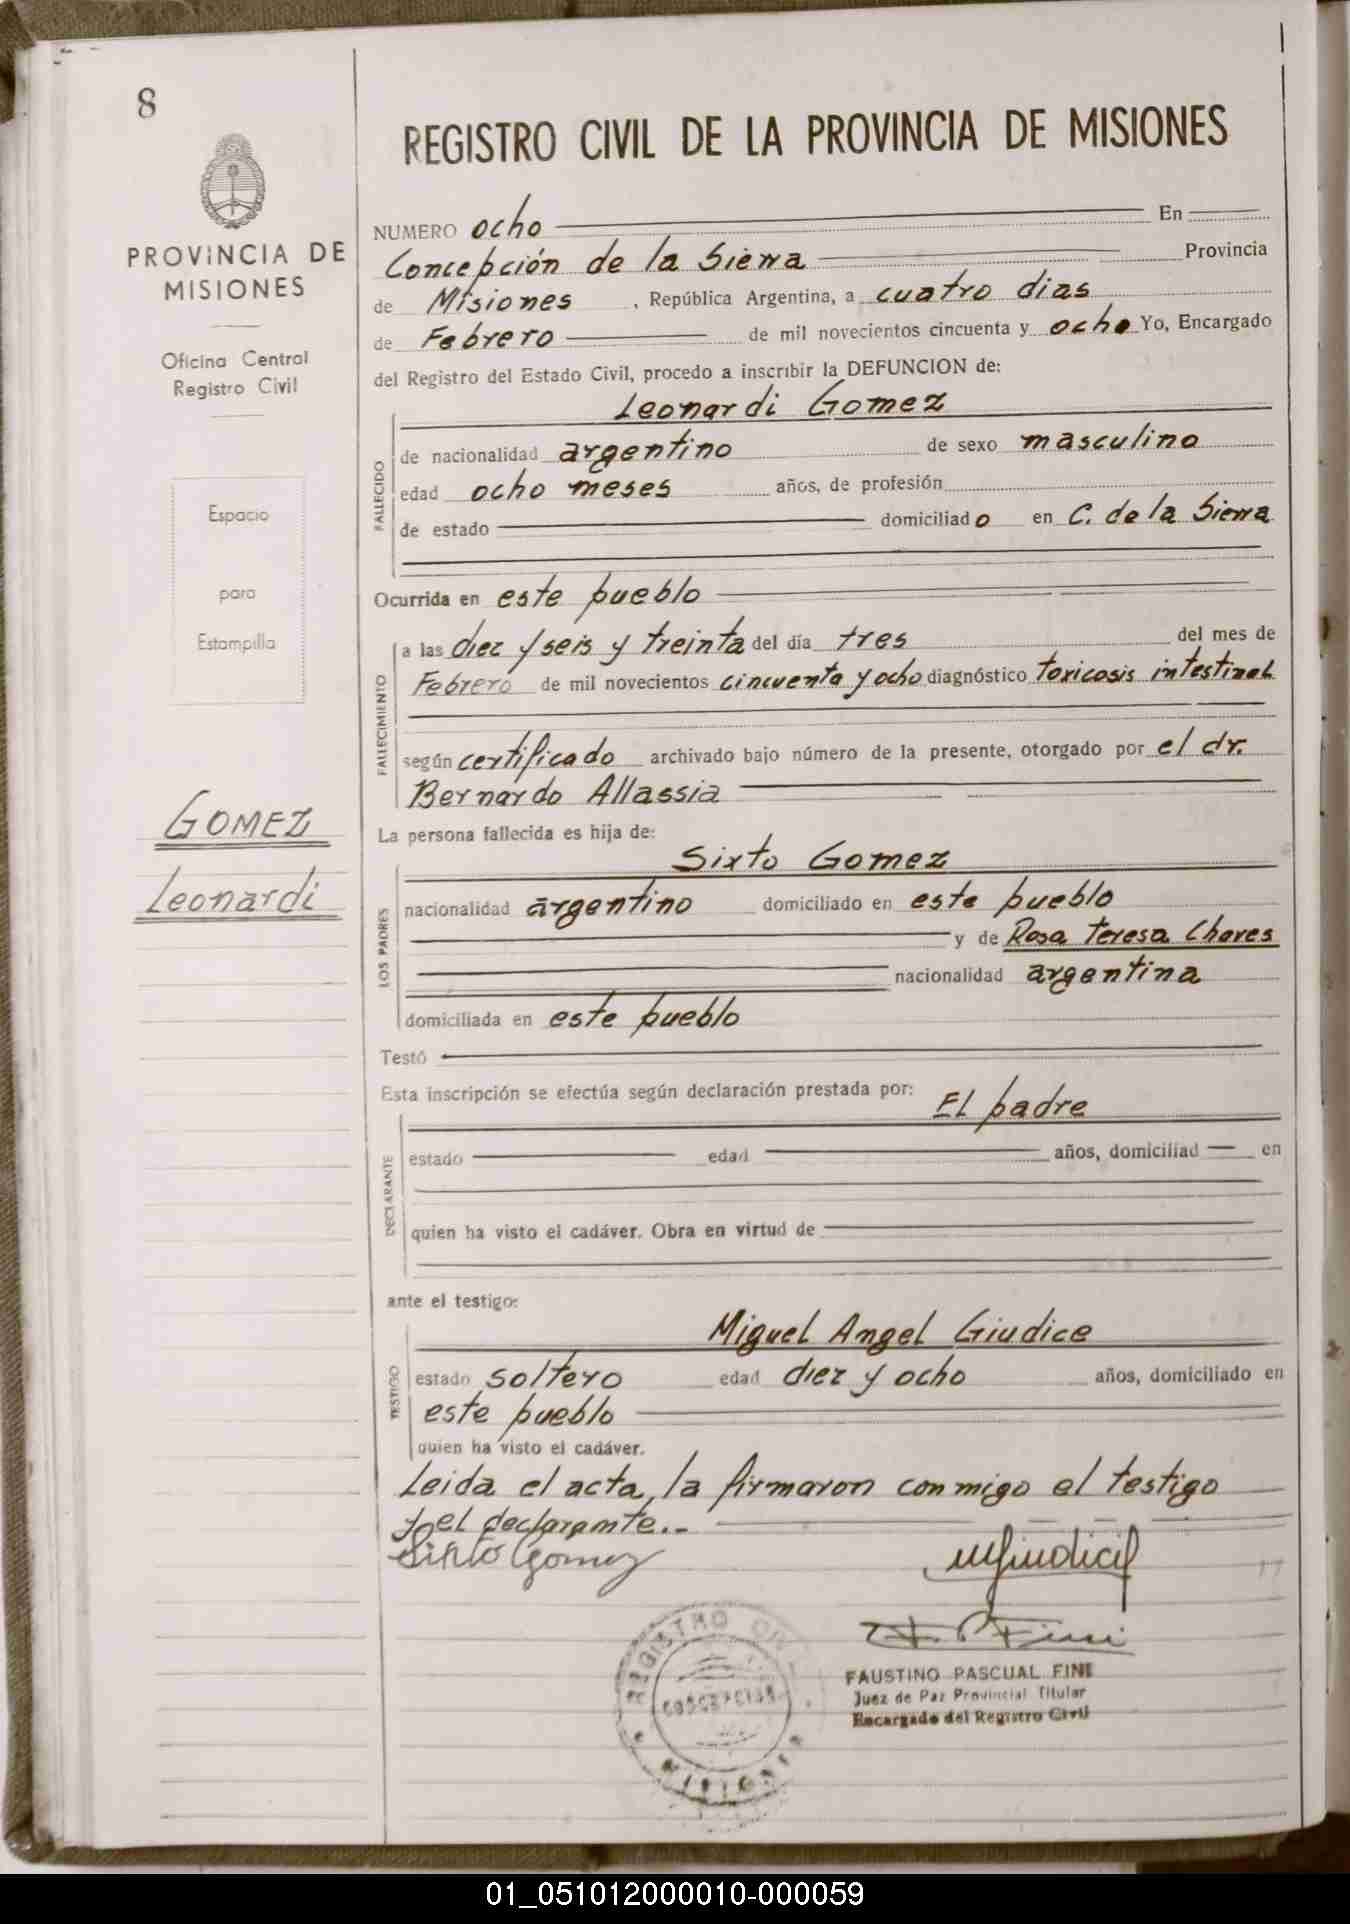 8
PROVINCIA DE
MISIONES
Oficina Central
Registro Civil
Espacio
para
Estampilla
GOMEZ
Leonardi
REGISTRO CIVIL DE LA PROVINCIA DE MISIONES
NUMERO ocho En
Concepción de la Sierra Provincia
de Misiones , República Argentina, a cuatro dias
de Febrero de mil novecientos cincuenta y ocho Yo, Encargado
del Registro del Estado Civil, procedo a inscribir la DEFUNCION de:
Leonardi Gomez
FALLECIDO
de nacionalidad argentino de sexo masculino
edad ocho meses años, de profesión
de estado domiciliado en C. de la Sierra
Ocurrida en este pueblo
FALLECIMIENTO
a las diez y seis y treinta del día tres del mes de
Febrero de mil novecientos cincuenta y ocho diagnóstico toxicosis intestinal
según certificado archivado bajo número de la presente, otorgado por el dr.
Bernardo Allassia
La persona fallecida es hija de:
Sixto Gomez
LOS PADRES
nacionalidad argentino domiciliado en este pueblo
y de Rosa Teresa Chaves
nacionalidad argentina
domiciliada en este pueblo
Testó
Esta inscripción se efectúa según declaración prestada por: El padre
DECLARANTE
estado edad años, domiciliad en
quien ha visto el cadáver. Obra en virtud de
ante el testigo:
Miguel Angel Giudice
TESTIGO
estado soltero edad diez y ocho años, domiciliado en
este pueblo
quien ha visto el cadáver.
Leida el acta, la firmaron conmigo el testigo
y el declarante.-
Sixto Gomez
MGiudice
F. P. Fini
REGISTRO CIVIL
MISIONES
FAUSTINO PASCUAL FINI
Juez de Paz Provincial Titular
Encargado del Registro Civil
01_051012000010-000059